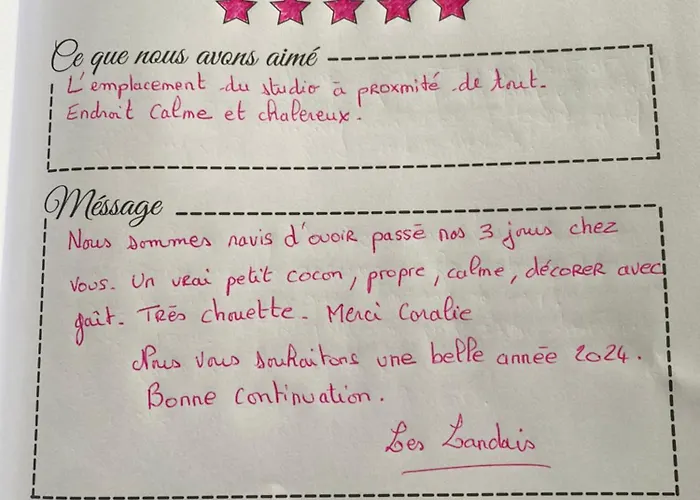 Ce que nous avons aimé
L'emplacement du studio à proxmité de tout.
Endroit calme et chaleureux.
Méssage
Nous sommes ravis d'avoir passé nos 3 jours chez
vous. Un vrai petit cocon, propre, calme, décorer avec
gait. Très chouette. Merci Coralie
Nous vous souhaitons une belle année 2024.
Bonne continuation.
Les Landais